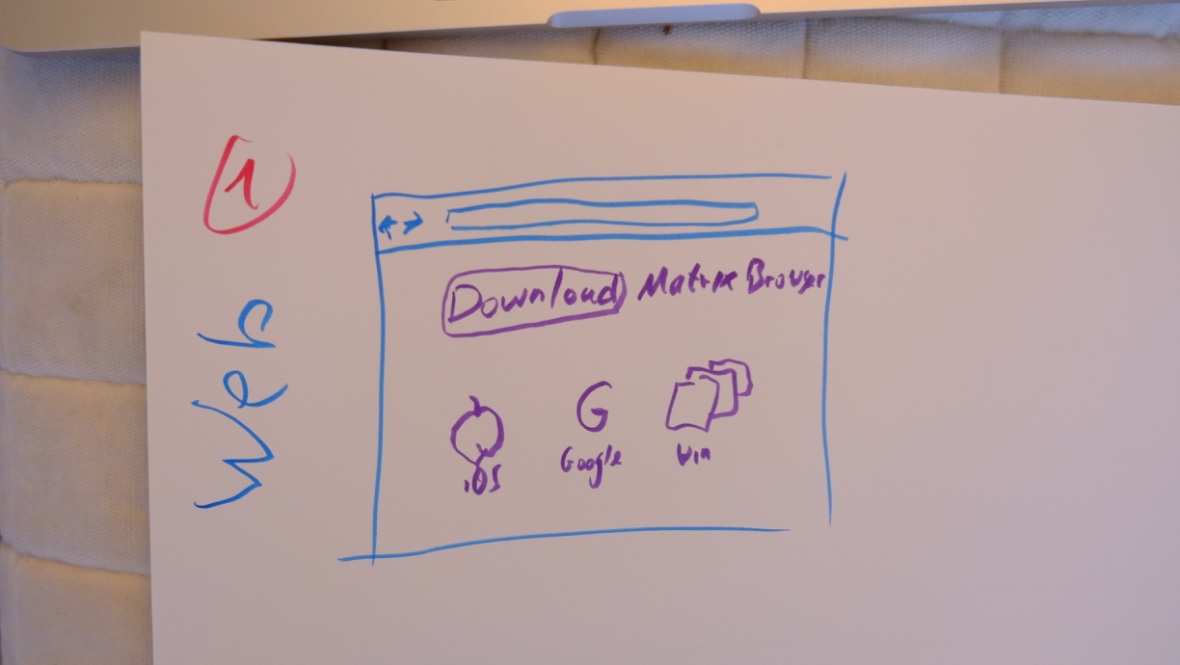 1
Web
Download Matrix Browser
G
iOS Google Win